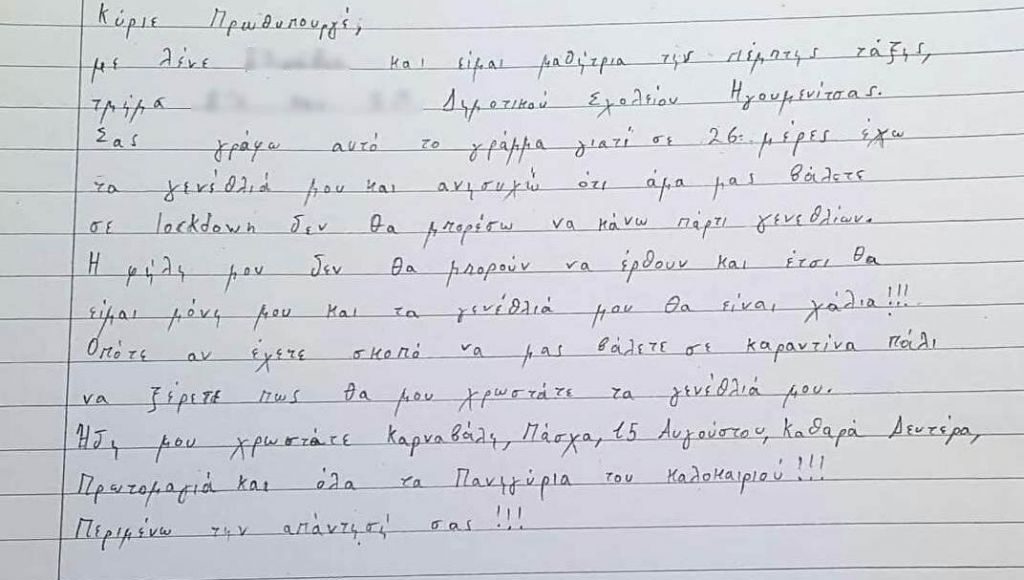 Κύριε Πρωθυπουργέ,
με λένε και είμαι μαθήτρια της πέμπτης τάξης,
τμήμα Δημοτικού Σχολείου Ηγουμενίτσας.
Σας γράφω αυτό το γράμμα γιατί σε 26 μέρες έχω
τα γενέθλιά μου και ανησυχώ ότι άμα μας βάλετε
σε lockdown δεν θα μπορέσω να κάνω πάρτι γενεθλίων.
Η φήλη μου δεν θα μπορούν να έρθουν και έτσι θα
είμαι μόνη μου και τα γενέθλιά μου θα είναι χάλια!!!
Οπότε αν έχετε σκοπό να μας βάλετε σε καραντίνα πάλι
να ξέρετε πως θα μου χρωστάτε τα γενέθλιά μου.
Ήδη μου χρωστάτε Καρναβάλη, Πάσχα, 15 Αυγούστου, Καθαρά Δευτέρα,
Πρωτομαγιά και όλα τα Πανηγύρια του καλοκαιριού!!!
Περιμένω την απάντησή σας!!!